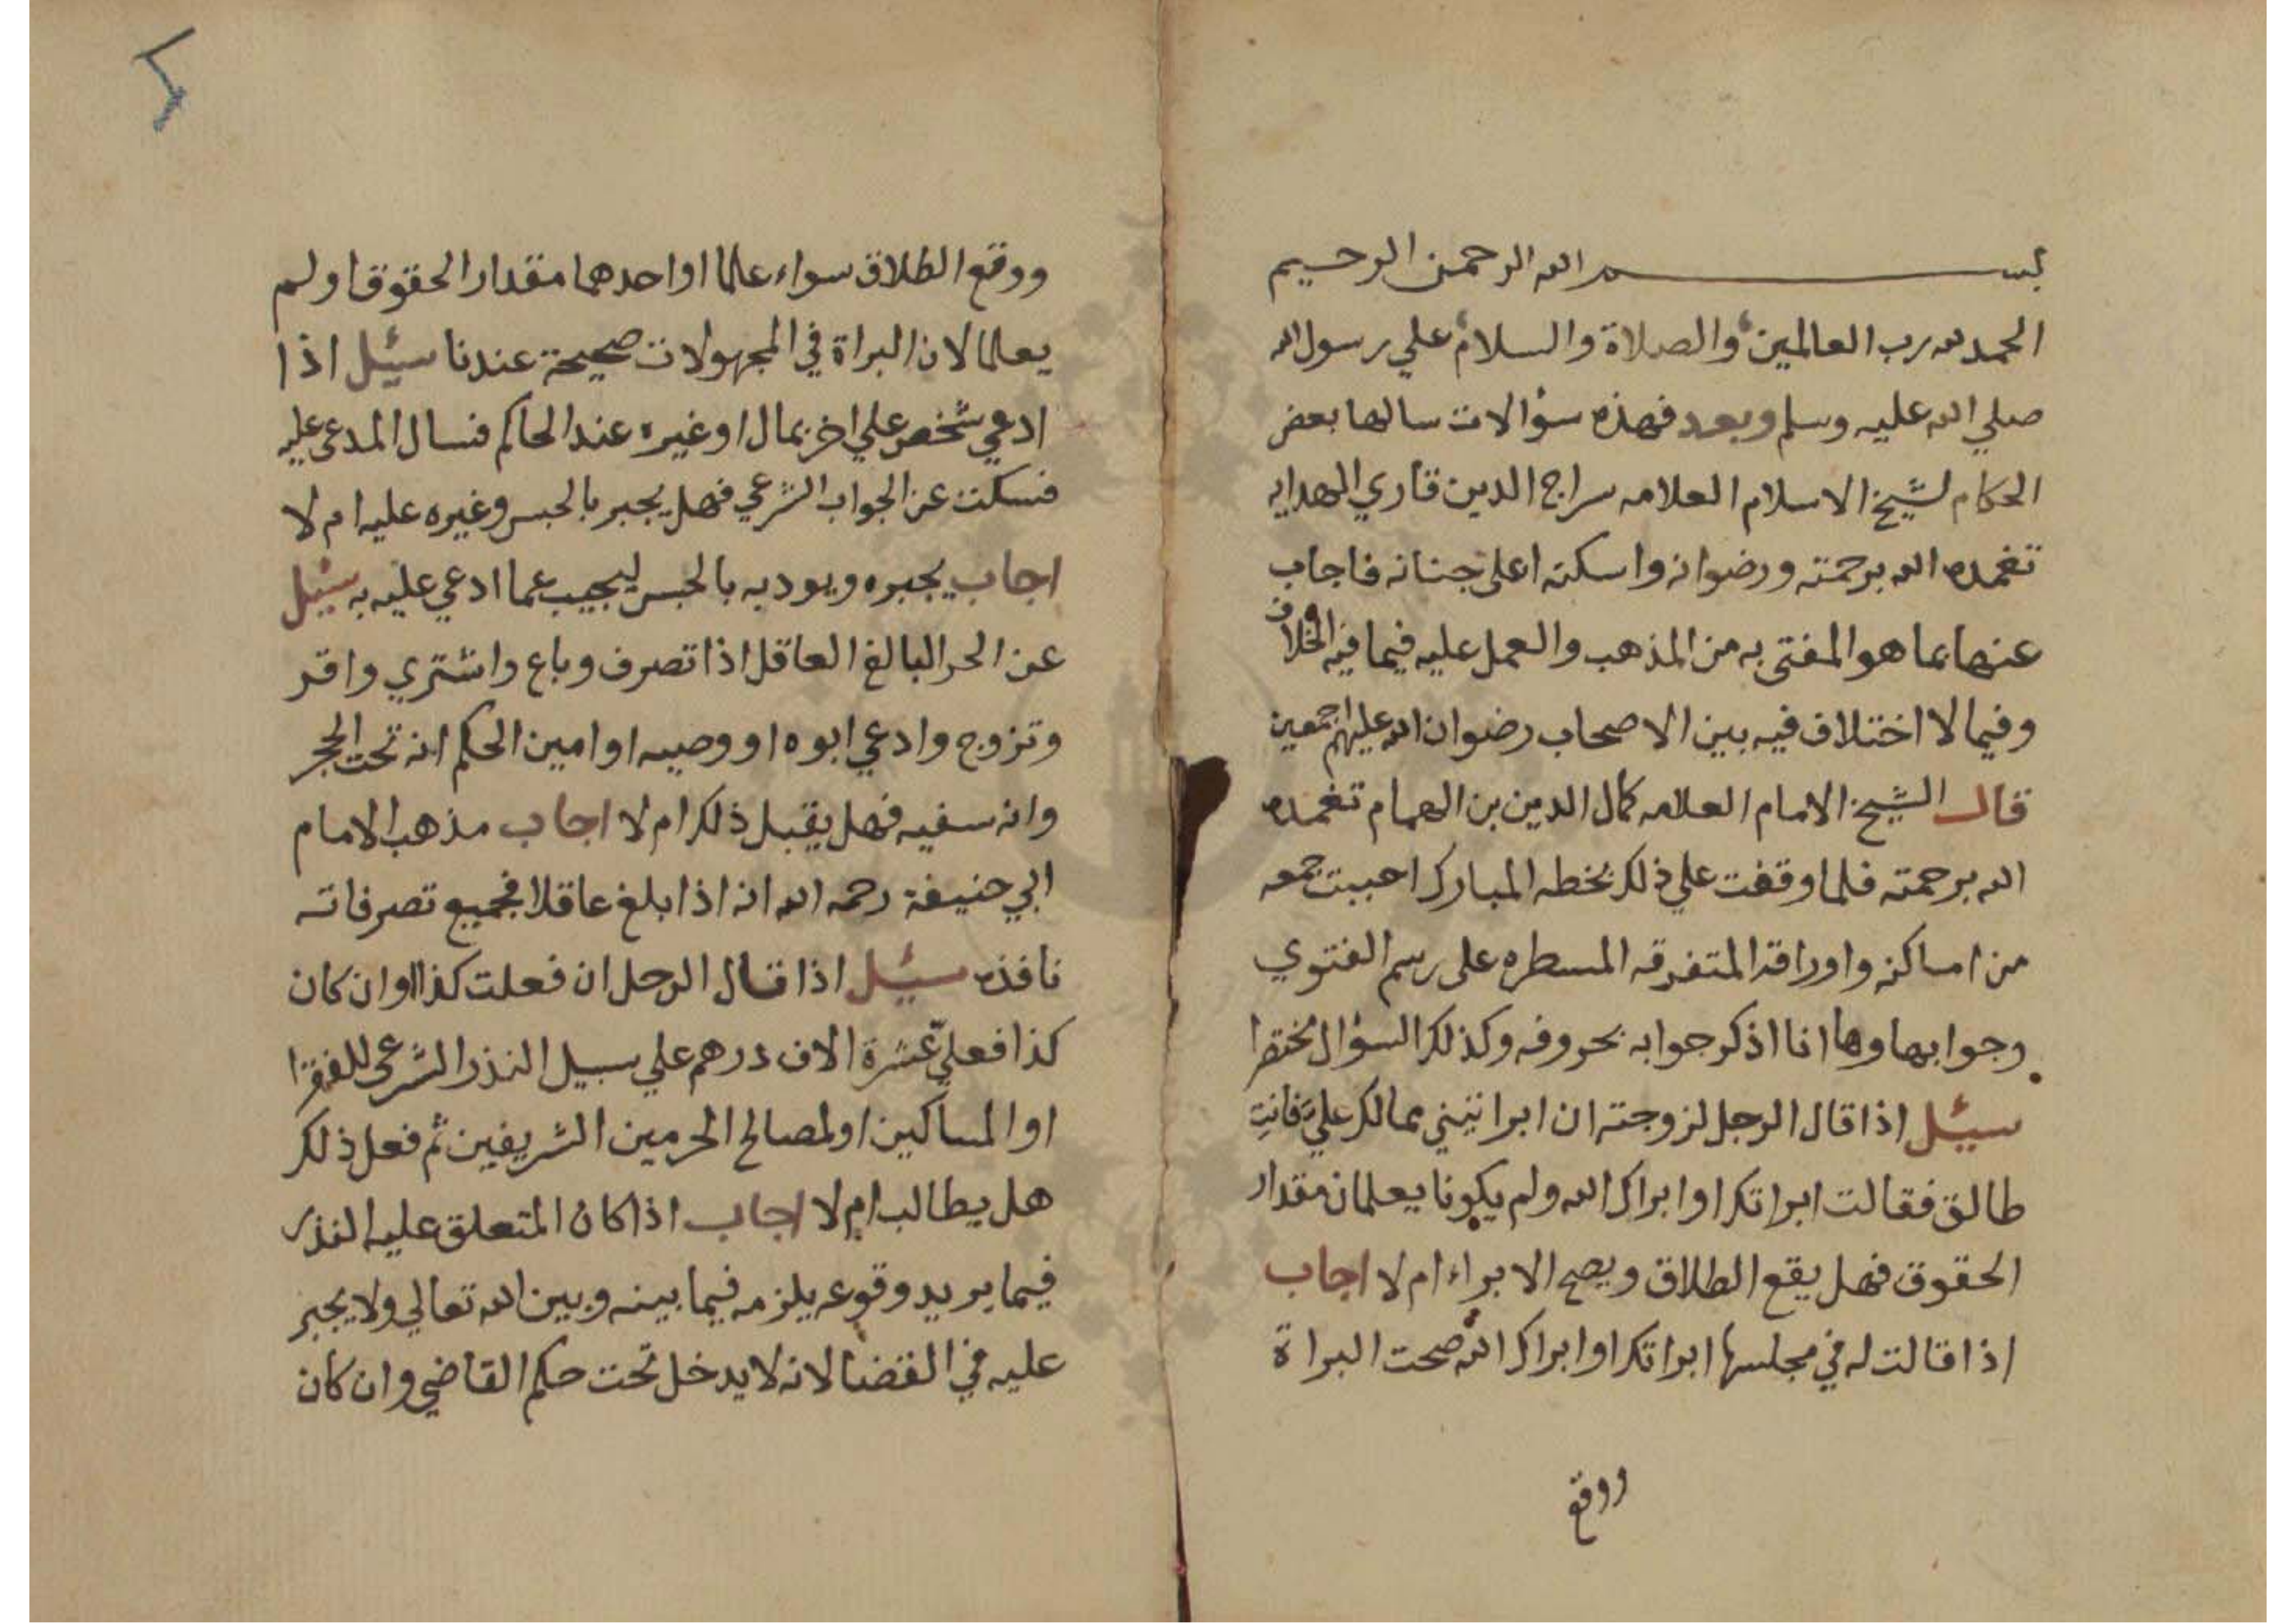 بسم الله الرحمن الرحيم
الحمد لله رب العالمين والصلاة والسلام علي رسول الله
صلي الله عليه وسلم وبعد فهذه سؤالات سالها بعض
الحكام لشيخ الاسلام العلامه سراج الدين قاري الهدايه
تغمده الله برحمته ورضوانه واسكنه اعلى جنانه فاجاب
عنها بما هو المفتى به من المذهب والعمل عليه فيما فيه الخلاف
وفيما لا اختلاف فيه بين الاصحاب رضوان الله عليهم اجمعين
قال الشيخ الامام العلامه كمال الدين بن الهمام تغمده
الله برحمته فلما وقفت علي ذلك بخطه المبارك احببت جمعه
من اماكنه واوراقه المتفرقه المسطره على رسم الفتوي
وجوابها وها انا اذكر جوابه بحروفه وكذلك السؤال مختصرا
سيئل اذا قال الرجل لزوجته ان ابراتيني مما لك عليّ فانت
طالق فقالت ابراتك او ابراك الله ولم يكونا يعلمان مقدار
الحقوق فهل يقع الطلاق ويصح الابراء ام لا اجاب
اذا قالت له في مجلسها ابراتك او ابراك الله صحت البراة
ووقع
ووقع الطلاق سواء علما او احدهما مقدار الحقوق او لم
يعلما لان البراة في المجهولات صحيحة عندنا سيئل اذا
ادعي شخص علي اخر بمال او غيره عند الحاكم فسال المدعى عليه
فسكت عن الجواب الشرعي فهل يجبر بالحبس وغيره عليه ام لا
اجاب يجبره ويودبه بالحبس ليجيب عما ادعي عليه به سيئل
عن الحر البالغ العاقل اذا تصرف وباع واشتري واقر
وتزوج وادعي ابوه او وصيه او امين الحكم انه تحت الحجر
وانه سفيه فهل يقبل ذلك ام لا اجاب مذهب الامام
ابي حنيفة رحمه الله انه اذا بلغ عاقلا فجميع تصرفاته
نافذه سيئل اذا قال الرجل ان فعلت كذا او ان كان
كذا فعليّ عشرة الاف درهم علي سبيل النذر الشرعي للفقرا
او المساكين او لمصالح الحرمين الشريفين ثم فعل ذلك
هل يطالب ام لا اجاب اذا كان المتعلق عليه النذر
فيما يريد وقوعه يلزمه فيما بينه وبين الله تعالي ولا يجبر
عليه في القضا لانه لا يدخل تحت حكم القاضي وان كان